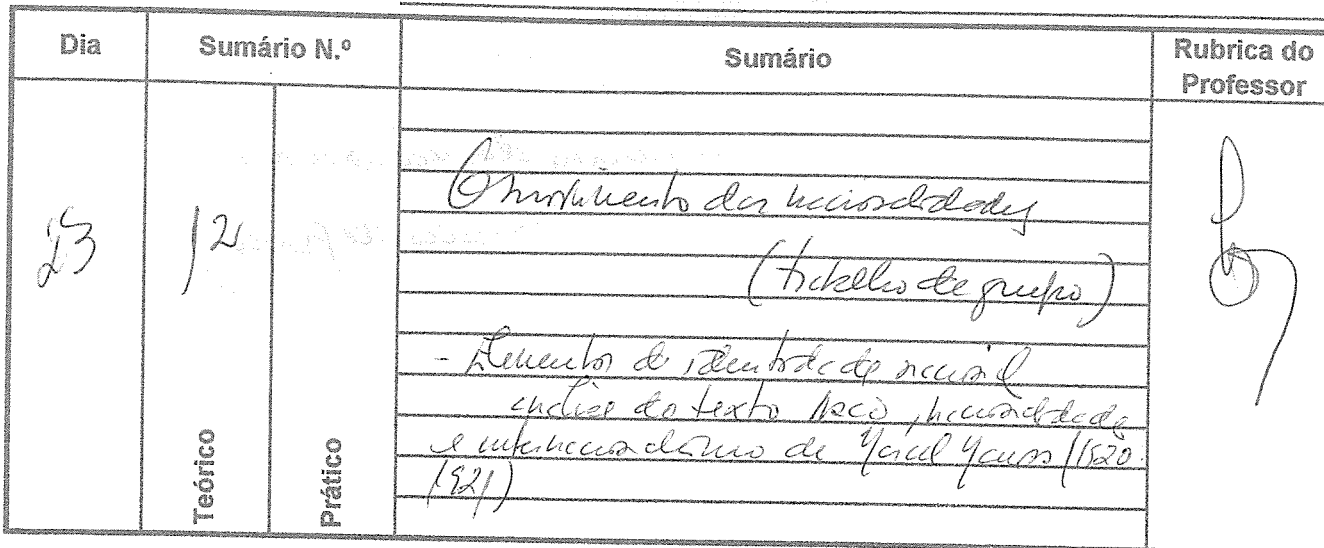 Dia
Sumário N.º
Sumário
Rubrica do
Professor
23
12
Teórico
Prático
O movimento das nacionalidades
(trabalho de grupo)
- Elementos de identidade nacional
análise do texto Nação, nacionalidade
e internacionalismo de Marcel Mauss (1920-
1921)